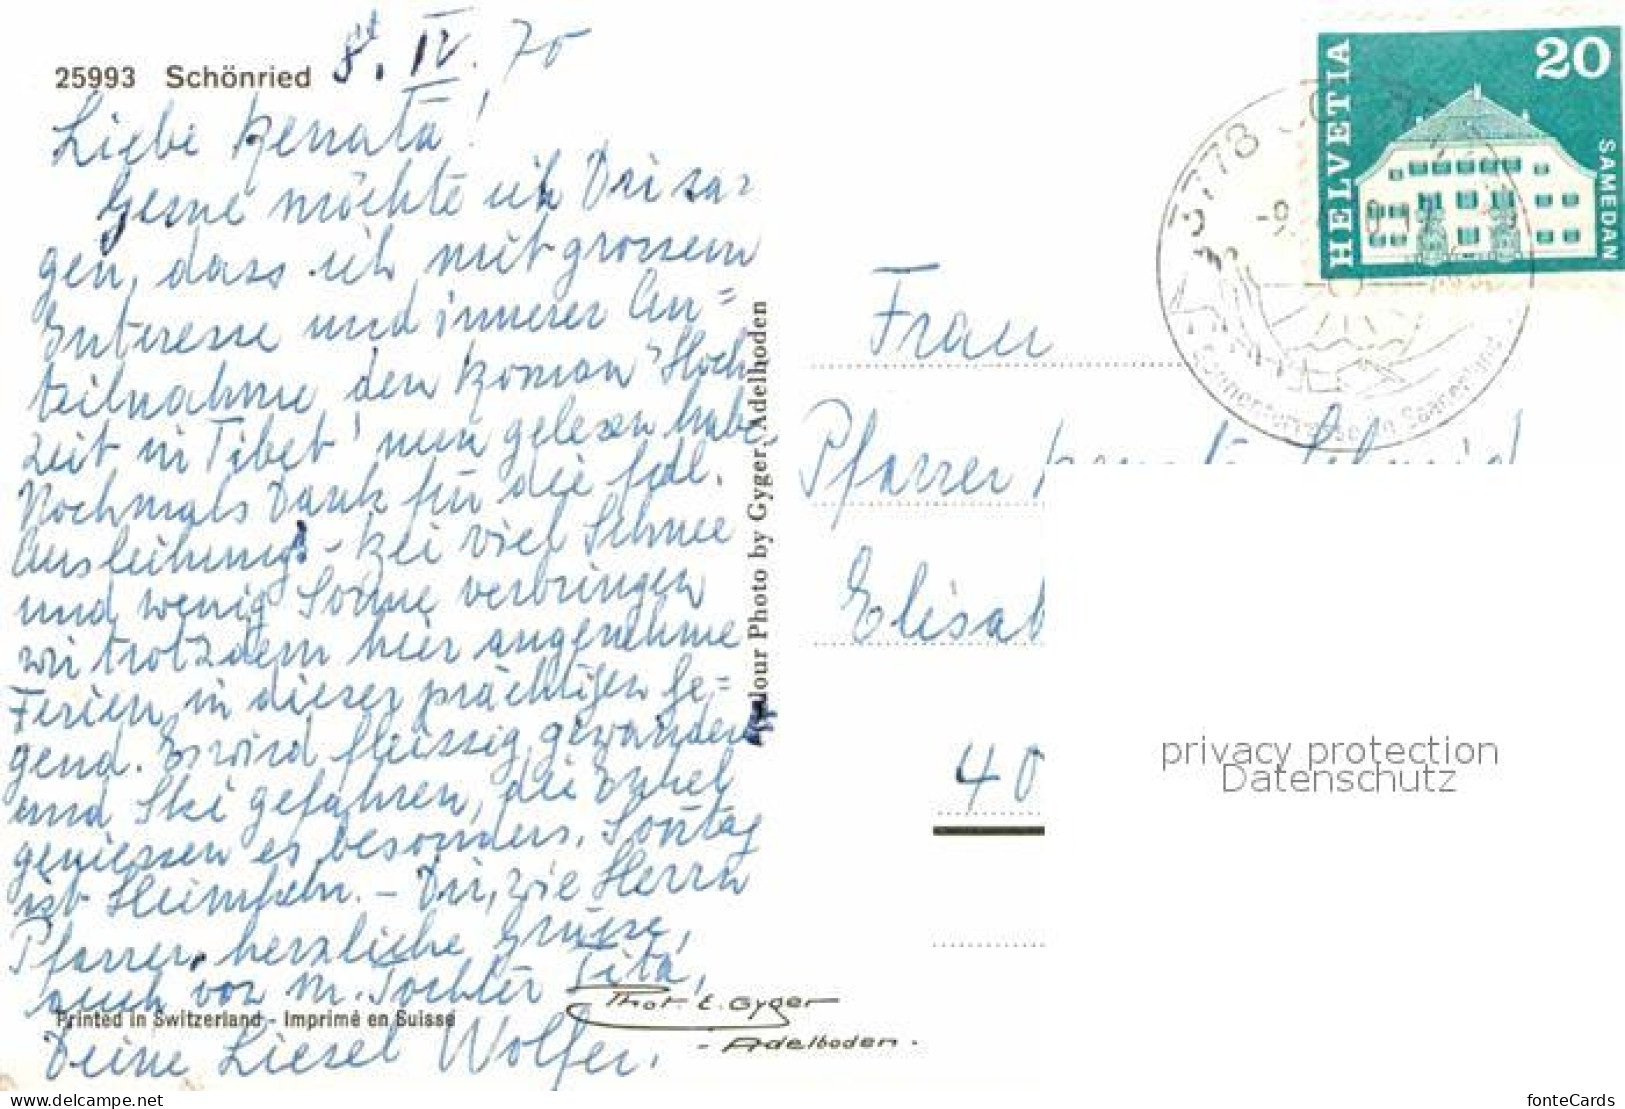 25993 Schönried 8. IV. 70
Liebe Renata!
Gerne möchte ich Dir sa-
gen, dass ich mit grossem
Interesse und innerer An=
teilnahme den Roman "Hoch
zeit in Tibet" nun gelesen habe.
Nochmals Dank für die fdl.
Ausleihung! - Bei viel Schnee
und wenig Sonne verbringen
wir trotzdem hier angenehme
Ferien in dieser prächtigen Ge=
gend. Es wird fleissig gewandert
und Ski gefahren, die Enkel
geniessen es besonders. Sonntag
ist Heimkehr. - Dir, wie Herrn
Pfarrer, herzliche Grüsse,
auch von m. Tochter Tita,
Deine Liesel Wolfer.
Printed in Switzerland - Imprimé en Suisse
Phot. E. Gyger
- Adelboden.
Colour Photo by Gyger, Adelboden
HELVETIA
20
SAMEDAN
3778
Sonnenterrasse im Saanenland
Frau
Pfarrer Renata Schmid
Elisab
40
privacy protection
Datenschutz
www.delcampe.net
fonteCards